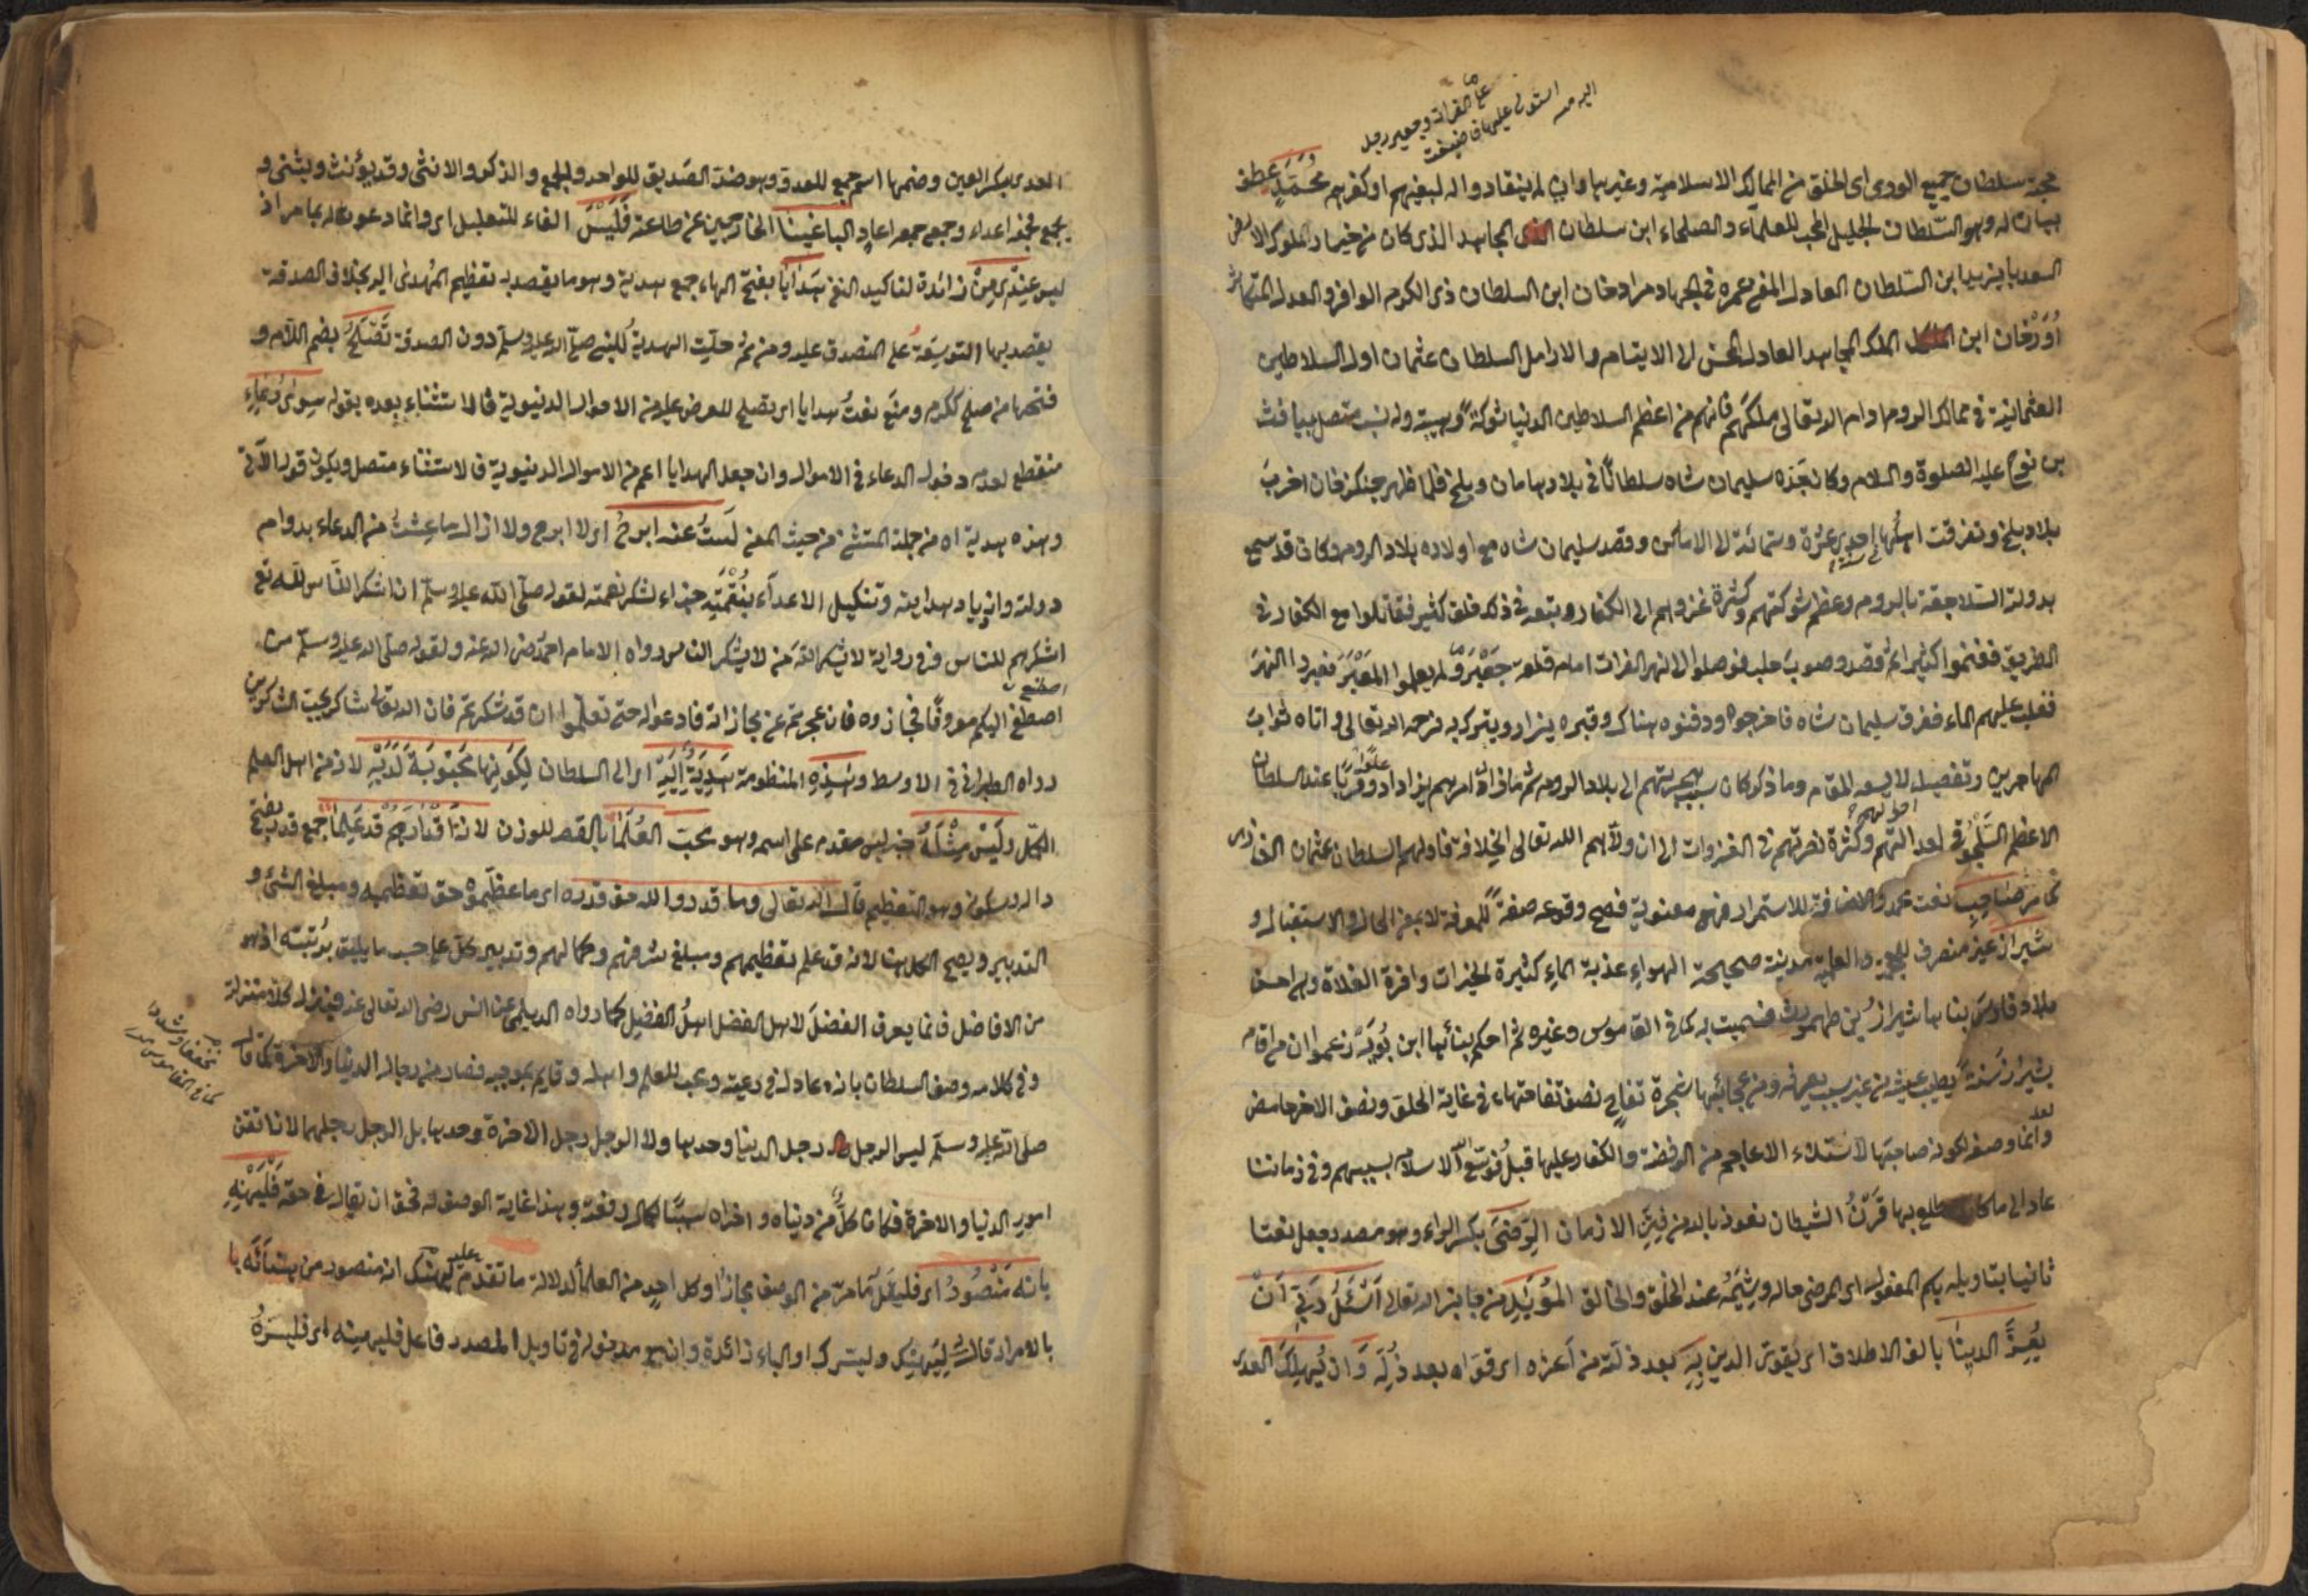 اليه من استولى عليها فاضيفت
حجة سلطان جميع الورى اى الخلق من الممالك الاسلامية وغيرها وان لم ينقادوا له لبغيهم او كفرهم محمد عطف
بيان له وهو السلطان الجليل المحب للعلماء والصلحاء ابن سلطان المجاهد الذى كان من خيار ملوك الارض
السعد بايزيد ابن السلطان العادل المفنى عمره فى الجهاد مراد خان ابن السلطان ذى الكرم الوافر والعدل المتكاثر
اورخان ابن الملك المجاهد العادل المحسن الى الايتام والارامل السلطان عثمان اول السلاطين
العثمانية فى ممالك الروم ادام الله تعالى ملكهم فانهم من اعظم السلاطين الدنيا شوكة وهيبة وله نسب متصل بيافث
بن نوح عليه الصلوة والسلام وكان جده سليمان شاه سلطانا فى بلاد ماهان وبلخ فلما ظهر جنكز خان اخرب
بلاد بلخ وتفرقت اهلها احدى عشرة وستمائة الى الاماكن وقصد سليمان شاه مع اولاده بلاد الروم وكان قد سمع
بدولة السلاجقة بالروم وعظم شوكتهم وكثرة غزواهم الى الكفار وتبعه فى ذلك خلق كثير فقاتلوا مع الكفار فى
الطريق فغنموا كثيرا ثم قصدوا صوب حلب فوصلوا الى نهر الفرات امام قلعة جعبر ولم يعلموا المعبر فعبروا النهر
فغلب عليهم الماء فغرق سليمان شاه فاخرجوه ودفنوه هناك وقبره يزار ويتبرك به رحمه الله تعالى واتاه ثواب
المهاجرين وتفصيله لا يسعه المقام وما ذكر كان سبب هجرتهم الى بلاد الروم ثم ما زال امرهم يزداد علوا وقربا عند السلطان
الاعظم السلجوقى لعدالتهم وكثرة نصرتهم فى الغزوات الى ان ولاهم الله تعالى الخلافة فاولهم السلطان عثمان الغازى
كما مر صاحب نعت محمد والاضافة للاستمرار فهى معنوية فصح وقوعه صفة للمعرفة لا بمعنى الحال والاستقبال و
شيراز غير منصرف للعجمة والعلمية مدينة صحيحة الهواء عذبة الماء كثيرة الخيرات وافرة الغلاة وهى احسن
بلاد فارس بناها شيراز بن طهمورث فسميت به كما فى القاموس وغيره ثم احكم بنائها ابن بويه زعموا ان من اقام
بشيراز سنة يطيب عيشه من غير سبب يعرفه ومن عجائبها شجرة تفاح نصف تفاحتها فى غاية الحلو ونصف الاخر حامض
وانما وصفه لكونه صاحبها لاستيلاء الاعاجم من الرفضة والكفار عليها قبل فوسع الله الاسلام بسببهم وفى زماننا
عاد الى ما كان يطلع بها قرن الشيطان نعوذ بالله من فتن الازمان الرضى بكسر الراء وهو مصدر جعل نعتا
ثانيا بتاويله بكم المفعول اى المرضى حاله وشيمه عند الخلق والخالق المؤيد من جانب الله تعالى اسئل ربى ان
يعز الدينا بالف الاطلاق اى يقوى الدين به بعد ذلة من اعزه اى قواه بعد ذله وان يهلك العدى
العدى بكسر العين وضمها اسم جمع للعدو وهو ضد الصديق للواحد والجمع والذكر والانثى وقد يؤنث ويثنى و
يجمع فجمعه اعداء وجمع جمعه اعاد الباغينا الخارجين عن طاعته فليس الفاء للتعليل اى وانما دعوت له بما مر اذ
ليس عندى من زائدة لتاكيد النفى هدايا بفتح الهاء جمع هدية وهو ما يقصد به تعظيم المهدى اليه بخلاف الصدقة
يقصد بها التوسعة على المتصدق عليه ومن ثم حلت الهدية للنبى صلى الله عليه وسلم دون الصدقة تصلح بضم اللام و
فتحها من صلح ككرم ومنع نعت هدايا اى تصلح للعرض عليه من الاموال الدنيوية فالاستثناء بعده بقوله سوى دعاء
منقطع لعدم دخول الدعاء فى الاموال وان جعل الهدايا اعم من الاموال الدنيوية فالاستثناء متصل ويكون قوله الآتى
وهذه هدية اه من جملة المستثنى من حيث المعنى لست عنه ابرح اى لا ابرح ولا ازال ما عشت من الدعاء بدوام
دولته وازدياد هدايته وتنكيل الاعداء بنقمته جزاء لشكر نعمته لقوله صلى الله عليه وسلم ان اشكر الناس لله تع
اشكرهم للناس وفى رواية لا يشكر الله من لا يشكر الناس رواه الامام احمد رضى الله عنه ولقوله صلى الله عليه وسلم من
اصطنع
اصطنع اليكم معروفا فجازوه فان عجزتم عن مجازاته فادعوا له حتى تعلموا ان قد شكرتم فان الله تعالى شاكر يحب الشاكرين
رواه الطبرانى فى الاوسط وهذه المنظومة هدية اليه اى الى السلطان لكونها محبوبة لديه لانه من اهل العلم
الكمل وليس مثله خبر ليس مقدم على اسمه وهو يحب العلما بالقصر للوزن لانه اقدارهم قد علما جمع قدر بفتح
داله وسكونه وهو التعظيم قال الله تعالى وما قدروا الله حق قدره اى ما عظموه حق تعظيمه ومبلغ الشئ و
التدبير ويصح الكل هنا لانه قد علم تعظيمهم ومبلغ شرفهم وكمالهم وتدبير كل على حسب ما يليق برتبته اذ هو
من الافاضل فانما يعرف الفضل لاهل الفضل اهل الفضل كما رواه الديلمى عن انس رضى الله تعالى عنه فينزل كلا منزلته
وفى كلامه وصف السلطان بانه عادل فى رعيته ومحب للعلم واهله وقايم بموجبه فصار من رجال الدنيا والآخرة كما قال
صلى الله عليه وسلم ليس الرجل رجل الدنيا وحدها ولا الرجل رجل الآخرة وحدها بل الرجل رجلهما لانه اتقن
امور الدنيا والاخرة فكان كل من دنياه واخراه سببا لكمال رفعته وهذا غاية الوصف له فحق ان يقال فى حقه فليهنه
بانه منصور اى فليقل ما مر من الوصف مجازا وكل احد من العلما لدلالة ما تقدم عليه ليهنك انه منصور من يشنأنه يا
بالامراد قال ليهنك وليسرك او الباء زائدة وان مع مدخوله فى تاويل المصدر فاعل فليهنه اى فليسره
كما فى القاموس